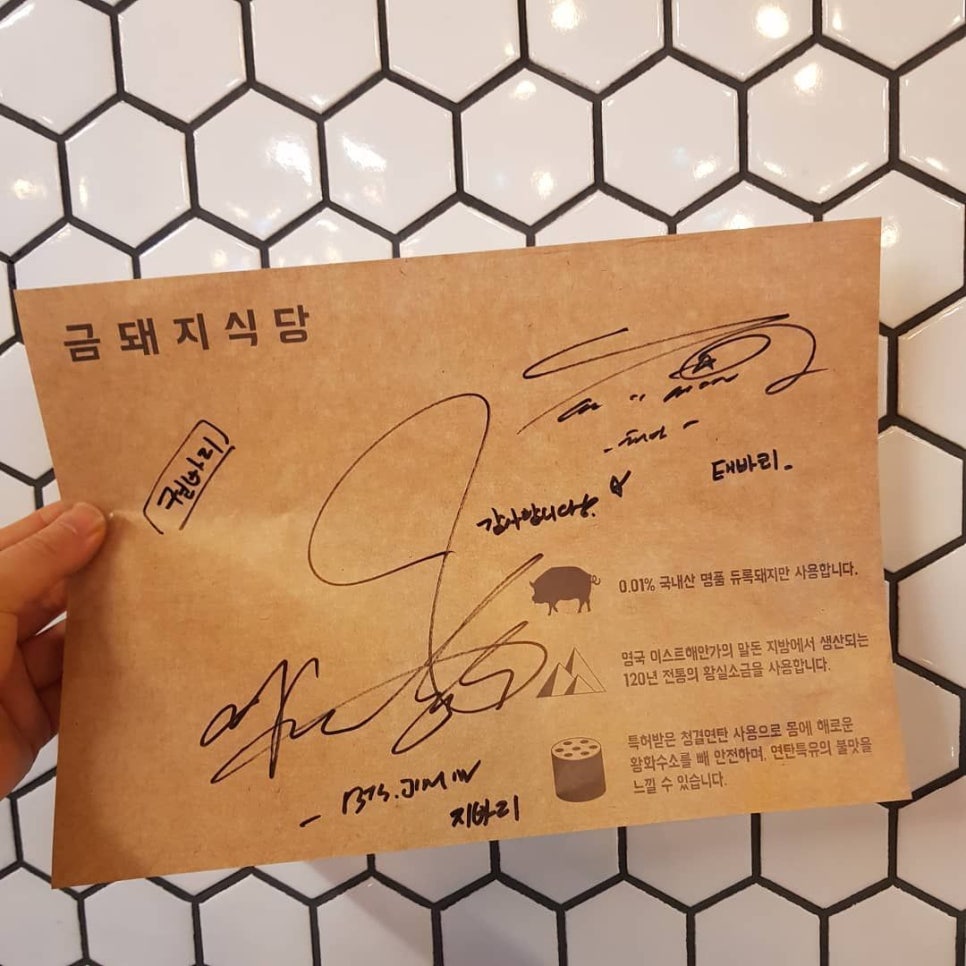 금돼지식당
권바리
-태민-
태바리-
감사합니다.
0.01% 국내산 명품 듀록돼지만 사용합니다.
영국 이스트해안가의 말돈 지방에서 생산되는
120년 전통의 황실소금을 사용합니다.
특허받은 청결연탄 사용으로 몸에 해로운
황화수소를 빼 안전하며, 연탄특유의 불맛을
느낄 수 있습니다.
- BTS. JIMIN
지바리